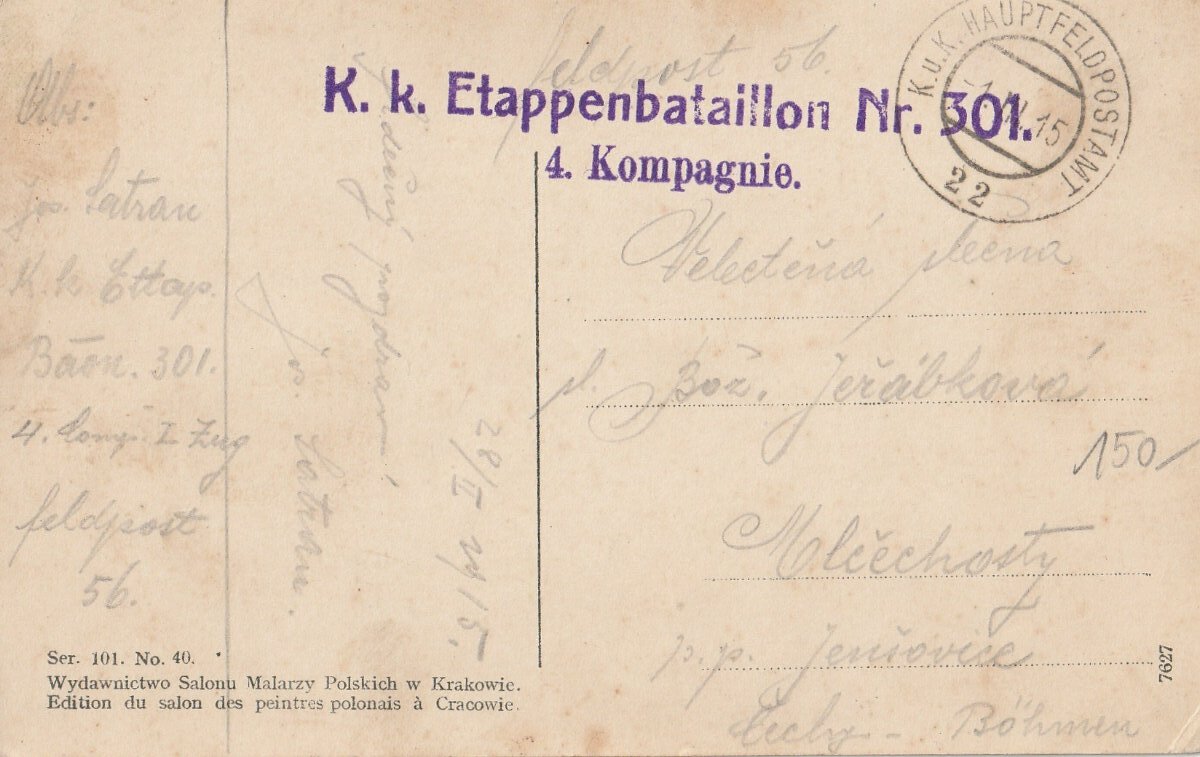 feldpost 56.
K. k. Etappenbataillon Nr. 301.
4. Kompagnie.
K. u. K. HAUPTFELDPOSTAMT
15
22
Jos. Satran
K. k. Ettap.
Baon. 301.
4. Comp. I Zug
feldpost
56.
Srdečný pozdrav!
Jos. Satran.
28/II 1915.
Velectěná slečna
sl. Bož. Jeřábková
150
Mlčechosty
p. p. Jeniovice
Čechy - Böhmen
Ser. 101. No. 40.
Wydawnictwo Salonu Malarzy Polskich w Krakowie.
Edition du salon des peintres polonais à Cracowie.
7627